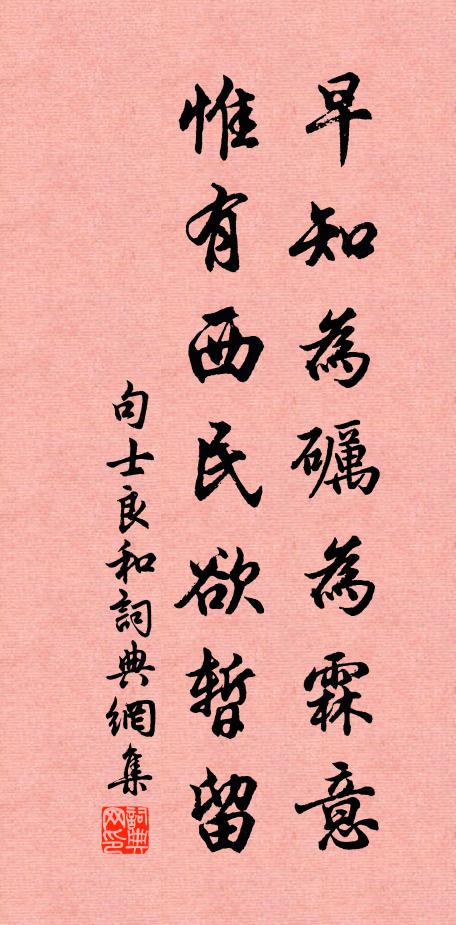 早知為礪為霖意
惟有西民欲暫留
句士良和詞典網集
詞典网印